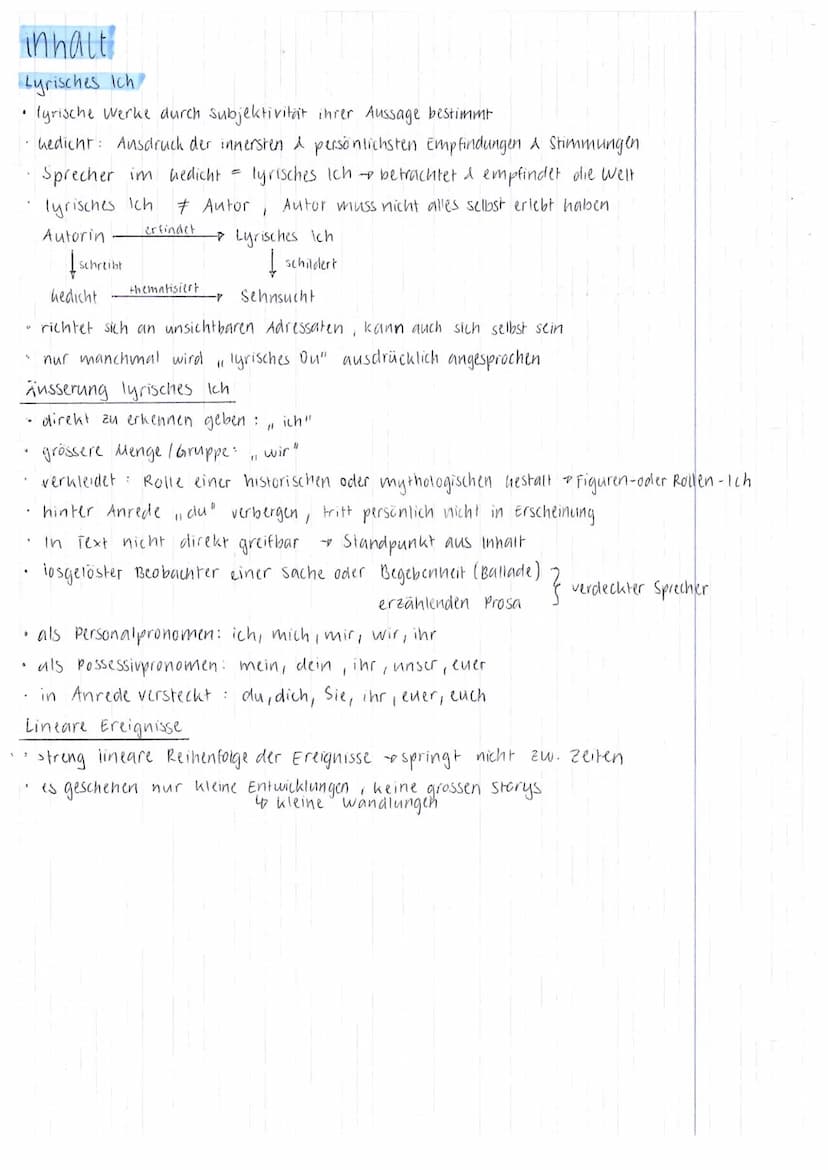 inhalt
Lyrisches Ich
• lyrische Werke durch Subjektivität ihrer Aussage bestimmt
• Gedicht: Ausdruck der innersten & persönlichsten Empfindungen & Stimmungen
• Sprecher im Gedicht = lyrisches Ich → betrachtet & empfindet die Welt
• lyrisches Ich ≠ Autor, Autor muss nicht alles selbst erlebt haben
Autorin erfindet → Lyrisches Ich
↓ schreibt ↓ schildert
Gedicht thematisiert → Sehnsucht
• richtet sich an unsichtbaren Adressaten, kann auch sich selbst sein
• nur manchmal wird „lyrisches Du" ausdrücklich angesprochen
Äusserung lyrisches Ich
• direkt zu erkennen geben: „ich"
• grössere Menge/Gruppe: „wir"
• verkleidet: Rolle einer historischen oder mythologischen Gestalt → Figuren- oder Rollen-Ich
• hinter Anrede „du" verbergen, tritt persönlich nicht in Erscheinung
• In Text nicht direkt greifbar → Standpunkt aus Inhalt
• losgelöster Beobachter einer Sache oder Begebenheit (Ballade) } verdeckter Sprecher
erzählenden Prosa
• als Personalpronomen: ich, mich, mir, wir, ihr
• als Possessivpronomen: mein, dein, ihr, unser, euer
• in Anrede versteckt: du, dich, Sie, ihr, euer, euch
Lineare Ereignisse
• streng lineare Reihenfolge der Ereignisse → springt nicht zw. Zeiten
• es geschehen nur kleine Entwicklungen, keine grossen Storys
↳ kleine Wandlungen